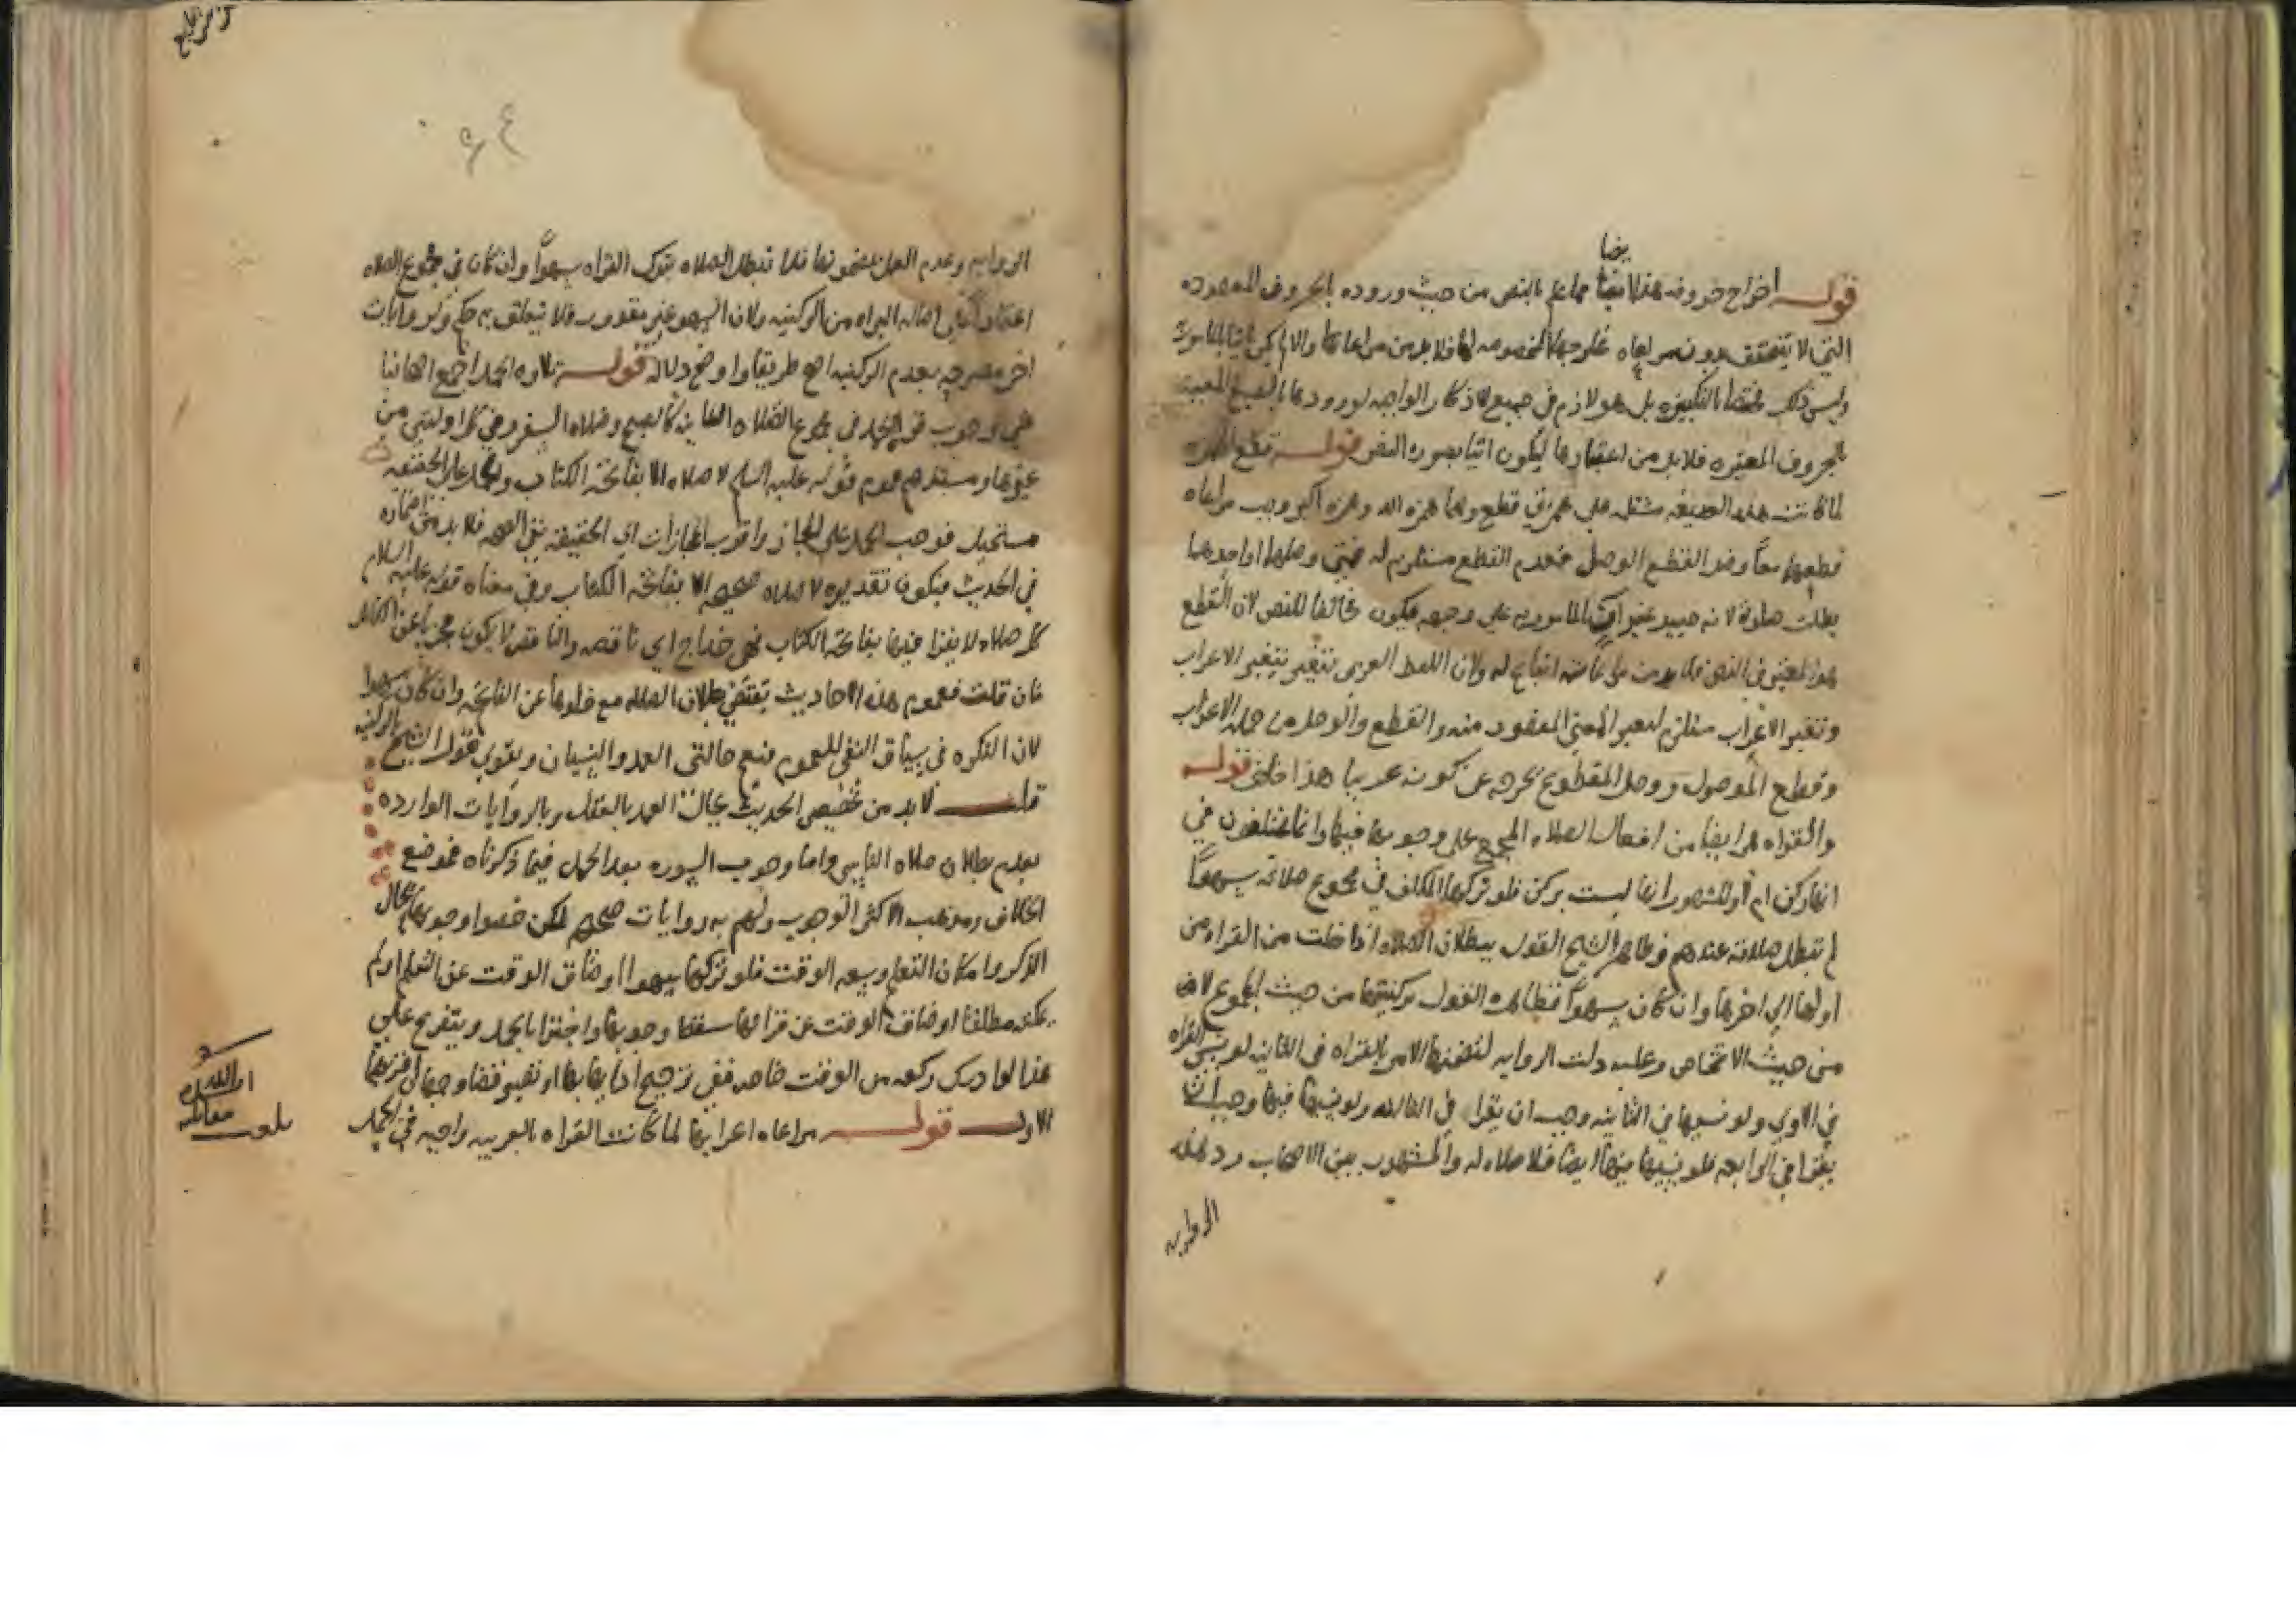 قوله اخراج حروفه هذا ايضا مما علم بالنص من حيث وروده بالحروف المعهوده
التي لا يتحقق بدون مراعاه مخارجها المخصوصه لها فلا بد من مراعاتها والا لم يكن اتيا بالماموربه
وليس ذلك مختصا بالتكبيره بل هو لازم في جميع الاذكار الواجبه لورودها بالصيغ المعينه
بالحروف المعتبره فلا بد من اعتبارها ليكون اتيا بصوره النص قوله قطع الهمزه
لما كانت هذه الصيغه مشتمله علي همزتي قطع وهما همزه الله وهمزه اكبر وجب مراعاه
قطعهما معا وضد القطع الوصل فعدم القطع مستلزم له فمتي وصلهما او احدهما
بطلت صلوته لانه حينيد غير ات بالمامور به علي وجهه فيكون مخالفا للنص لان القطع
هو المعتبر في النص فلا بد من مراعاته اتباع له ولان اللفظ العربي يتغير بتغير الاعراب
وتغير الاعراب مستلزم لتغير المعني المقصود منه والقطع والوصل من جمله الاعراب
وقطع الموصول ووصل المقطوع يخرجه عن كونه عربيا هذا خلف قوله
والقراه هي ايضا من افعال الصلاه المجمع علي وجوبها فيها وانما يختلفون في
انها ركن ام لا والمشهور انها ليست بركن فلو تركها المكلف في مجموع صلاته سهوا
لم تبطل صلاته عندهم وظاهر الشيخ القول ببطلان الصلاه اذا خلت من القراه من
اولها الي اخرها وان كان سهوا فظاهره القول بركنيتها من حيث المجموع لا
من حيث الاشخاص وعليه دلت الروايه لتضمنها الامر بالقراه في الثانيه لو نسي القراه
في الاولي ولو نسيها في الثانيه وجب ان يقرا في الثالثه ولو نسيها فيها وجب ان
يقرا في الرابعه فلو نسيها فيها ايضا فلا صلاه له والمشهور بين الاصحاب رد هذه
الروايه
الروايه وعدم العمل بمضمونها فلا تبطل الصلاه بترك القراه سهوا وان كان في مجموع الصلاه
اعتمادا علي اصاله البراه من الركنيه ولان السهو غير مقدور فلا يتعلق به حكم ولروايات
اخر مصرحه بعدم الركنيه اصح طريقا واوضح دلاله قوله تلاوه الحمد اجمع اصحابنا
علي وجوب قراه الحمد في مجموع الصلاه الثنائيه كالصبح وصلاه السفر وفي كل اولتين من
غيرها ومستندهم عموم قوله عليه السلم لا صلاه الا بفاتحه الكتاب والحمل علي الحقيقه
مستحيل فوجب الحمل علي المجاز واقرب المجازات الي الحقيقه نفي الصحه فلا بد من اضماره
في الحديث فيكون تقديره لا صلاه صحيحه الا بفاتحه الكتاب وفي معناه قوله عليه السلام
كل صلاه لا يقرا فيها بفاتحه الكتاب فهي خداج اي ناقصه والناقص لا يكون مجزيا عن الكامل
فان قلت فعموم هذه الاحاديث يقتضي بطلان الصلاه مع خلوها عن الفاتحه وان كان سهوا
لان النكره في سياق النفي للعموم فتعم حالتي العمد والنسيان ويقوي قول الشيخ بالركنيه
قلت لا بد من تخصيص الحديث بحاله العمد بالعقل وبالروايات الوارده
بعدم بطلان صلاه الناسي واما وجوب السوره بعد الحمد فيما ذكرناه فموضع
الخلاف ومذهب الاكثر الوجوب ولهم به روايات صحيحه لكن خصوا وجوبها بحال
الذكر وامكان التعلم وسعه الوقت فلو تركها سهوا او ضاق الوقت عن التعلم او لم
يمكنه مطلقا او ضاق الوقت عن قراتها سقط وجوبها واجتزا بالحمد ويتفرع علي
هذا لو ادرك ركعه من الوقت خاصه ففي ترجيح
الاول قوله مراعاه اعرابها لما كانت القراه بالعربيه واجبه في الحمد
بلغت
مقابله